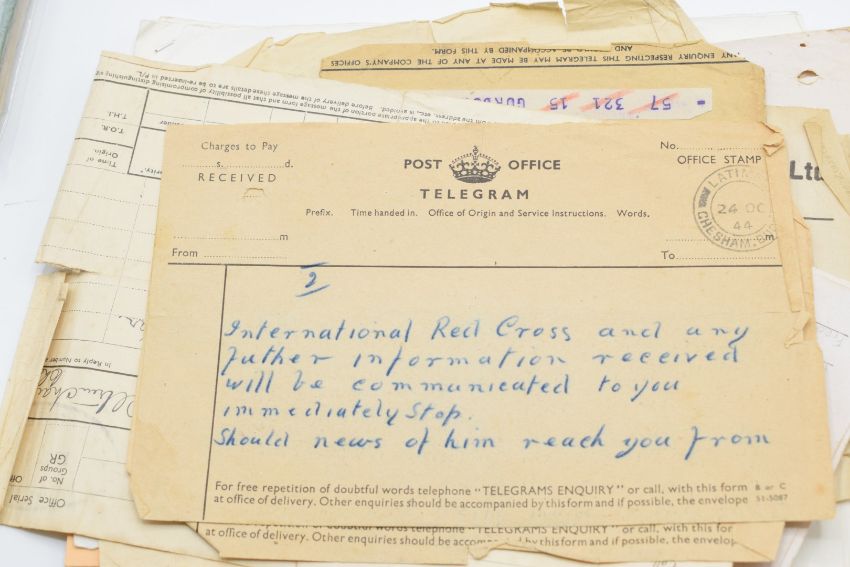 ANY ENQUIRY RESPECTING THIS TELEGRAM MAY BE MADE AT ANY OF THE COMPANY'S OFFICES
AND
ACCOMPANIED BY THIS FORM.
57 321 15
the address, etc., is avoided. Before delivery of the message these details are to be re-inserted in P/L.
the appropriate portion of the message form and that all possibility of compromising distinguishing
T.H.I.
T.O.R.
Time of
Origin.
In Reply to Number
No. of
Groups
GR
Office Serial
OR
Ltd
Charges to Pay
s. d.
RECEIVED
POST OFFICE
TELEGRAM
No.
OFFICE STAMP
LATIM
24 OC
44
CHESHAM
Prefix. Time handed in. Office of Origin and Service Instructions. Words.
m
From
m
To
2
International Red Cross and any
futher information received
will be communicated to you
immediately Stop.
Should news of him reach you from
For free repetition of doubtful words telephone "TELEGRAMS ENQUIRY" or call, with this form
at office of delivery. Other enquiries should be accompanied by this form and if possible, the envelope
B or C
51-5087
repetition of doubtful words telephone "TELEGRAMS ENQUIRY" or call, with this for
at office of delivery. Other enquiries should be by this form and if possible, the envelop